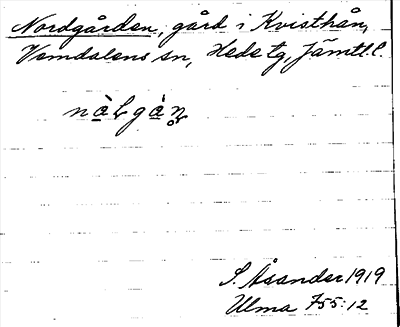 Nordgården, gård i Kvisthån,
Vemdalens sn, Hede tg, Jämtl. l.
S. Åsander 1919
Ulma 755:12